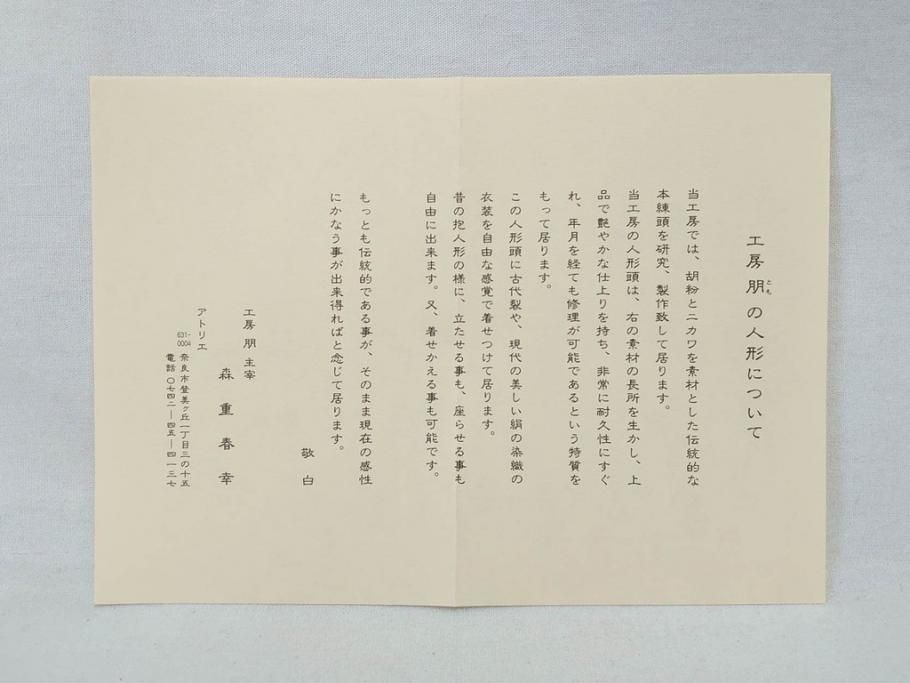 工房 朋の人形について
とも
当工房では、胡粉とニカワを素材とした伝統的な
本練頭を研究、製作致して居ります。
当工房の人形頭は、右の素材の長所を生かし、上
品で艶やかな仕上りを持ち、非常に耐久性にすぐ
れ、年月を経ても修理が可能であるという特質を
もって居ります。
この人形頭に古代裂や、現代の美しい絹の染織の
衣装を自由な感覚で着せつけて居ります。
昔の抱人形の様に、立たせる事も、座らせる事も
自由に出来ます。又、着せかえる事も可能です。
もっとも伝統的である事が、そのまま現在の感性
にかなう事が出来得ればと念じて居ります。
敬白
工房 朋 主宰
森重春幸
アトリエ
631-0004 奈良市登美ヶ丘一丁目三の十五
電話 〇七四二―四五―四一三七